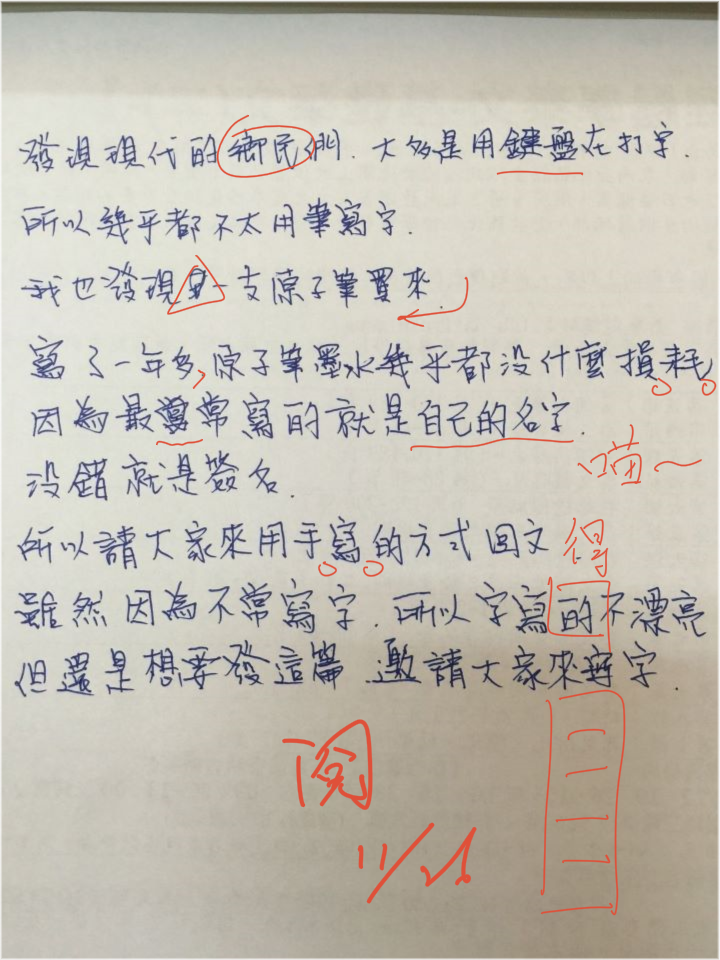 發現現代的鄉民們.大多是用鍵盤在打字.
所以幾乎都不太用筆寫字.
我也發現 一支原子筆買來
寫了一年多,原子筆墨水幾乎都沒什麼損耗
因為最常寫的就是自己的名字.
沒錯就是簽名.
喵~
所以請大家來用手寫的方式回文
得
雖然因為不常寫字.所以字寫的不漂亮
但還是想要發這篇.邀請大家來寫字.
閱
11/26